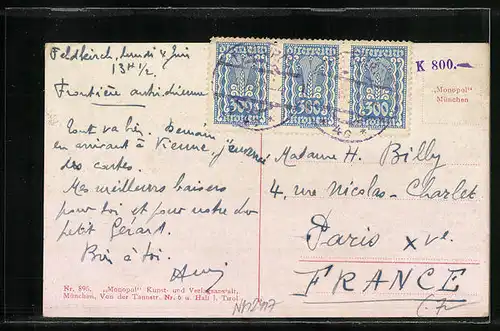 Feldkirch, lundi 4 juin
13H 1/2.
Frontière autrichienne
Tout va bien. Demain
en arrivant à Vienne, j'enverrai
des cartes.
Mes meilleurs baisers
pour toi et pour notre
petit Gérard.
Bien à toi.
Nr. 895. „Monopol" Kunst- und Verlagsanstalt,
München, Von der Tannstr. Nr. 6 u. Hall i. Tirol
Österreich Österreich Österreich
300 300 300
Kronen Kronen Kronen
K 800.—
„Monopol"
München
Madame H. Billy
4, rue Nicolas-Charlet
Paris XVe
FRANCE